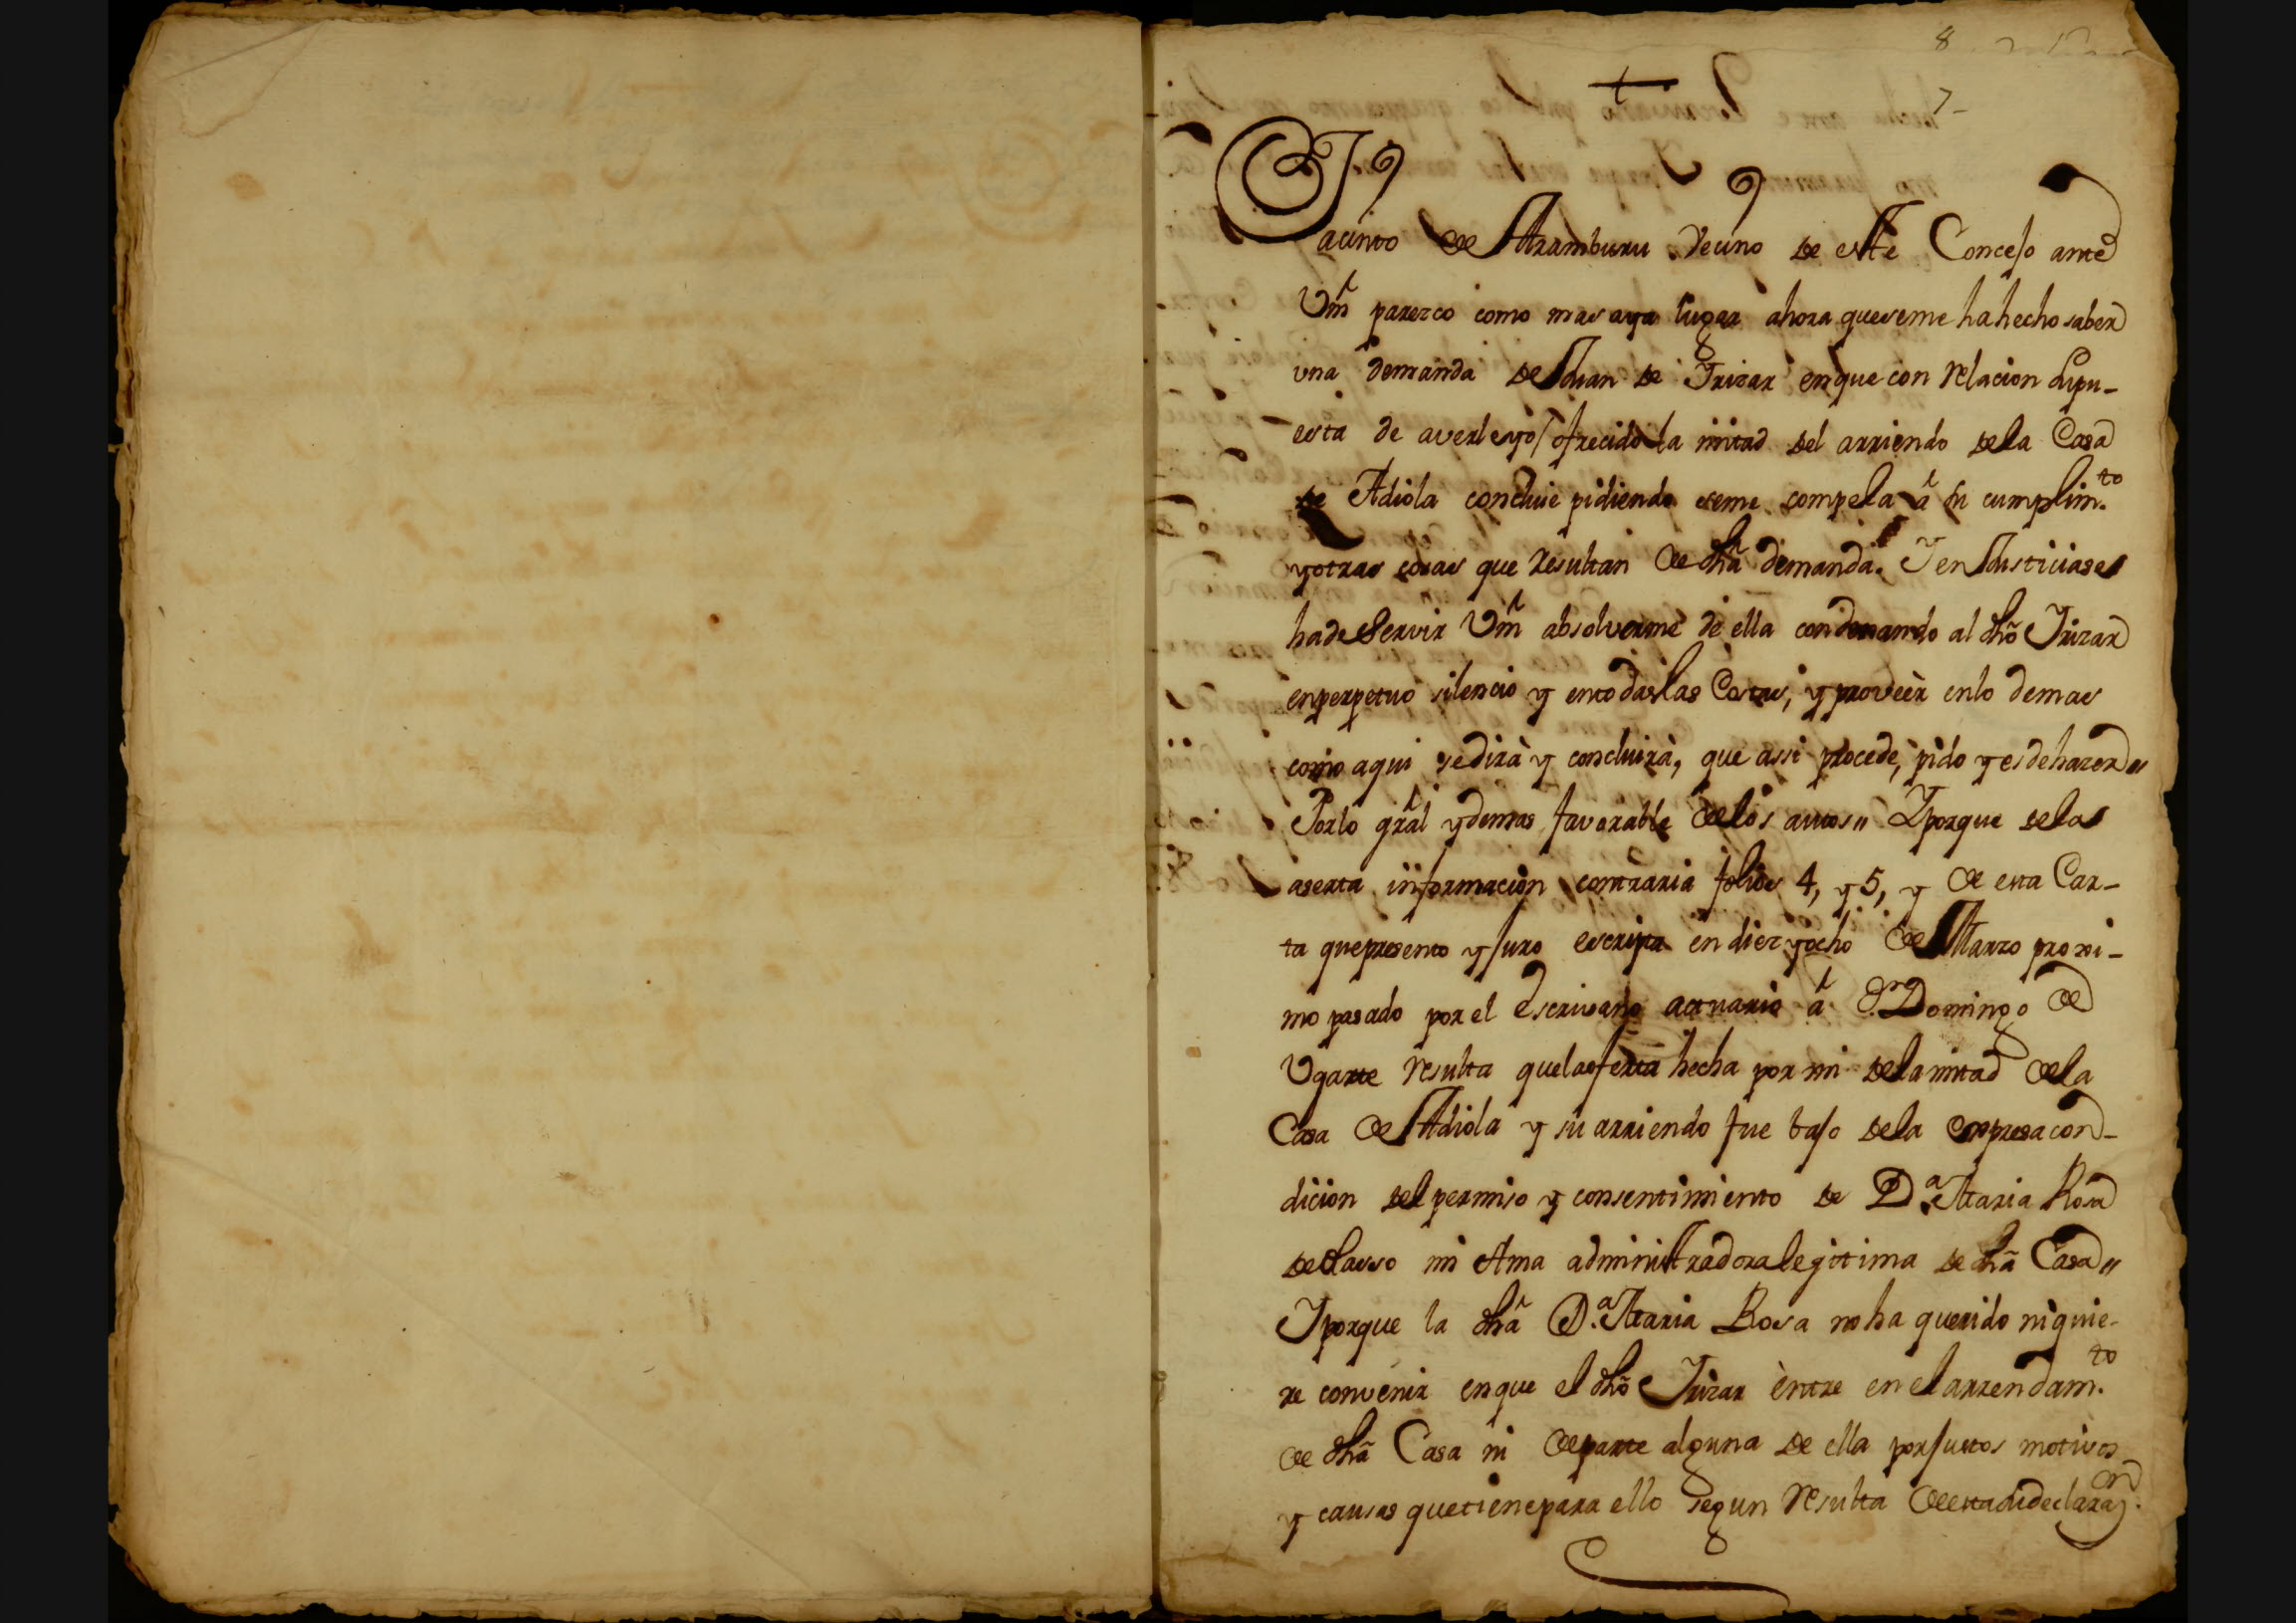 8
7-
†
Jacinto de Aramburu Vecino de este Concejo ante
Vm parezco como mas aya lugar ahora que se me ha hecho saber
vna demanda de Juan de Irizar en que con relacion supu-
esta de averle yo ofrecido la mitad del arriendo de la Casa
de Adiola concluie pidiendo se me compela â su cumplim.to
y otras cosas que resultan de dha demanda. Y en Justicia se
ha de servir Vm absolverme de ella condenando al dho Irizar
en perpetuo silencio y en todas las Costas, y proveèr en lo demas
como aqui se dirà y concluirà, que assi procede, pido y es de hazer„
Por lo gral y demas favorable de los autos„ Y porque de la
aserta informacion contraria folios 4, y 5, y de esta Car-
ta que presento y juro escripta en diez y ocho de Marzo proxi-
mo pasado por el escrivano actuario â Dn Domingo de
Vgarte resulta que la oferta hecha por mi de la mitad de la
Casa de Adiola y su arriendo fue bajo de la expresa con-
dicion del permiso y consentimiento de D.a Maria Rosa
de mi Ama administradora legitima de dha Casa„
Y porque la dha D.a Maria Rosa no ha querido ni quie-
re convenir en que el dho Irizar èntre en el arrendam.to
de dha Casa ni de parte alguna de ella por justos motivos
y causas que tiene para ello segun resulta de esta su declaraz.on